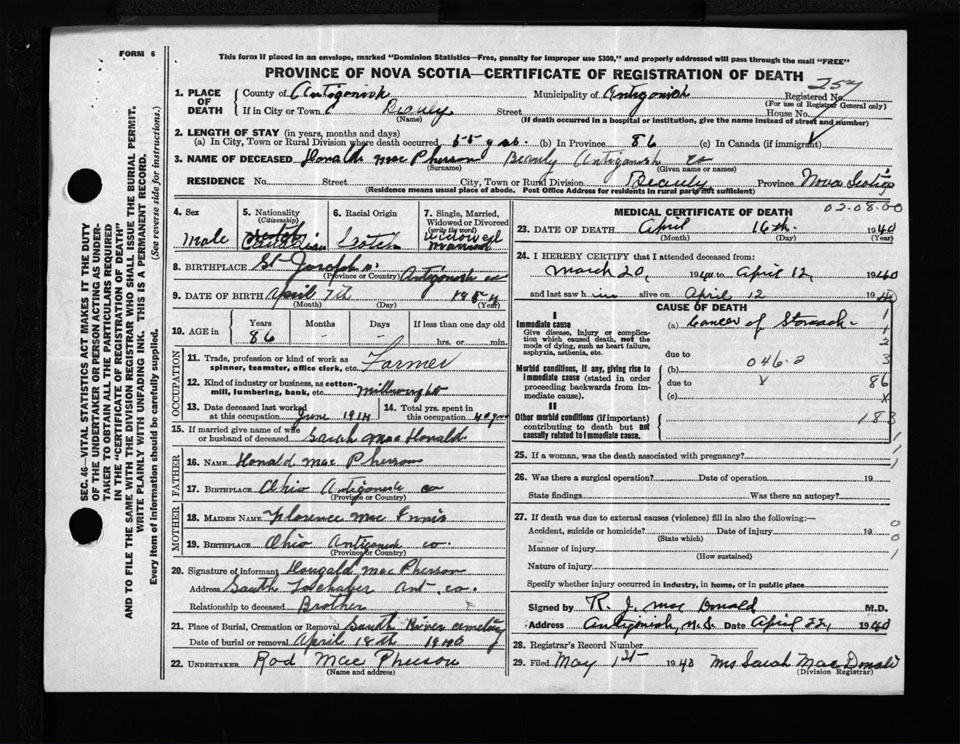 FORM 6
This form if placed in an envelope, marked "Dominion Statistics—Free, penalty for improper use $300," and properly addressed will pass through the mail "FREE"
PROVINCE OF NOVA SCOTIA—CERTIFICATE OF REGISTRATION OF DEATH
257
1. PLACE OF DEATH
County of Antigonish Municipality of Antigonish Registered No.
(For use of Registrar General only)
If in City or Town Beauly Street House No.
(Name) (If death occurred in a hospital or institution, give the name instead of street and number)
2. LENGTH OF STAY (in years, months and days)
(a) In City, Town or Rural Division where death occurred, 55 yrs. (b) In Province 86 (c) In Canada (if immigrant)
3. NAME OF DECEASED Donald Mac Pherson Beauly Antigonish co
(Surname) (Given name or names)
RESIDENCE No. Street City, Town or Rural Division Beauly Province Nova Scotia
(Residence means usual place of abode. Post Office Address for residents in rural parts not sufficient)
02.08.00
4. Sex
Male
5. Nationality
(Citizenship)
Canadian
6. Racial Origin
Scotch
7. Single, Married, Widowed or Divorced
(write the word)
widowed
married
8. BIRTHPLACE St Joseph's Antigonish co
(Province or Country)
9. DATE OF BIRTH April 7th 1854
(Month) (Day) (Year)
10. AGE in
Years Months Days If less than one day old
86 - - hrs. or min.
OCCUPATION
11. Trade, profession or kind of work as spinner, teamster, office clerk, etc. Farmer
12. Kind of industry or business, as cotton-mill, lumbering, bank, etc. Millwright
13. Date deceased last worked at this occupation June 1914
14. Total yrs. spent in this occupation 40 yrs
15. If married give name of wife or husband of deceased Sarah Mac Donald
FATHER
16. Name Donald Mac Pherson
17. Birthplace Ohio Antigonish co
(Province or Country)
MOTHER
18. MAIDEN NAME Florence Mac Innis
19. BIRTHPLACE Ohio Antigonish co.
(Province or Country)
20. Signature of informant Dougald Mac Pherson
Address South Lochaber Ant. co.
Relationship to deceased Brother
21. Place of Burial, Cremation or Removal South River Cemetery
Date of burial or removal April 18th 1940
22. UNDERTAKER Rod Mac Pherson
(Name and address)
MEDICAL CERTIFICATE OF DEATH
23. DATE OF DEATH April 16th 1940
(Month) (Day) (Year)
24. I HEREBY CERTIFY that I attended deceased from:
March 20, 1940 to April 12 1940
and last saw him alive on April 12 1940
CAUSE OF DEATH
I
Immediate cause
Give disease, injury or complication which caused death, not the mode of dying, such as heart failure, asphyxia, asthenia, etc.
(a) Cancer of Stomach
due to
Morbid conditions, if any, giving rise to immediate cause (stated in order proceeding backwards from immediate cause).
(b) 046.2
due to X
(c)
1
1
2
3
86
X
183
II
Other morbid conditions (if important) contributing to death but not causally related to immediate cause.
25. If a woman, was the death associated with pregnancy?
26. Was there a surgical operation? Date of operation 19
State findings Was there an autopsy?
27. If death was due to external causes (violence) fill in also the following:
Accident, suicide or homicide? Date of injury 19
(State which)
Manner of injury
(How sustained)
Nature of injury
Specify whether injury occurred in industry, in home, or in public place
Signed by R. J. Mac Donald M.D.
Address Antigonish, N.S. Date April 22, 1940
28. Registrar's Record Number
29. Filed May 1st 1940 Mrs Sarah MacDonald
(Division Registrar)
SEC. 46—VITAL STATISTICS ACT MAKES IT THE DUTY
OF THE UNDERTAKER OR PERSON ACTING AS UNDER-
TAKER TO OBTAIN ALL THE PARTICULARS REQUIRED
IN THE "CERTIFICATE OF REGISTRATION OF DEATH"
AND TO FILE THE SAME WITH THE DIVISION REGISTRAR WHO SHALL ISSUE THE BURIAL PERMIT.
WRITE PLAINLY WITH UNFADING INK. THIS IS A PERMANENT RECORD.
Every item of information should be carefully supplied. (See reverse side for instructions.)